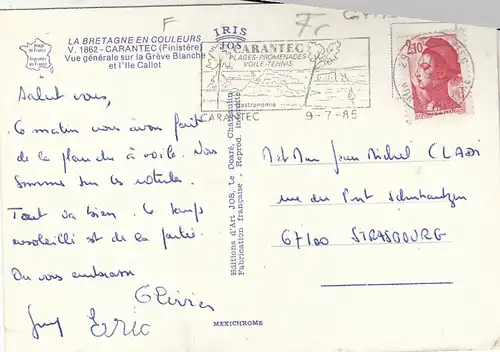 LA BRETAGNE EN COULEURS
V. 1862 - CARANTEC (Finistère)
Vue générale sur la Grève Blanche
et l'Ile Callot
IRIS
JOS
CARANTEC
PLAGES-PROMENADES
VOILE-TENNIS
gastronomie
CARANTEC
9-7-85
2,10
Salut vous,
Ce matin nous avons fait
de la planche à voile. Nous
sommes sur les
Tout va bien. Le temps
ensoleillé est de la partie.
On vous embrasse
Olivier
Eric
Editions d'Art JOS, Le Doaré, Chateaulin
Fabrication française - Reprod. interdite
MEXICHROME
Jean Michel
rue du
67100 STRASBOURG